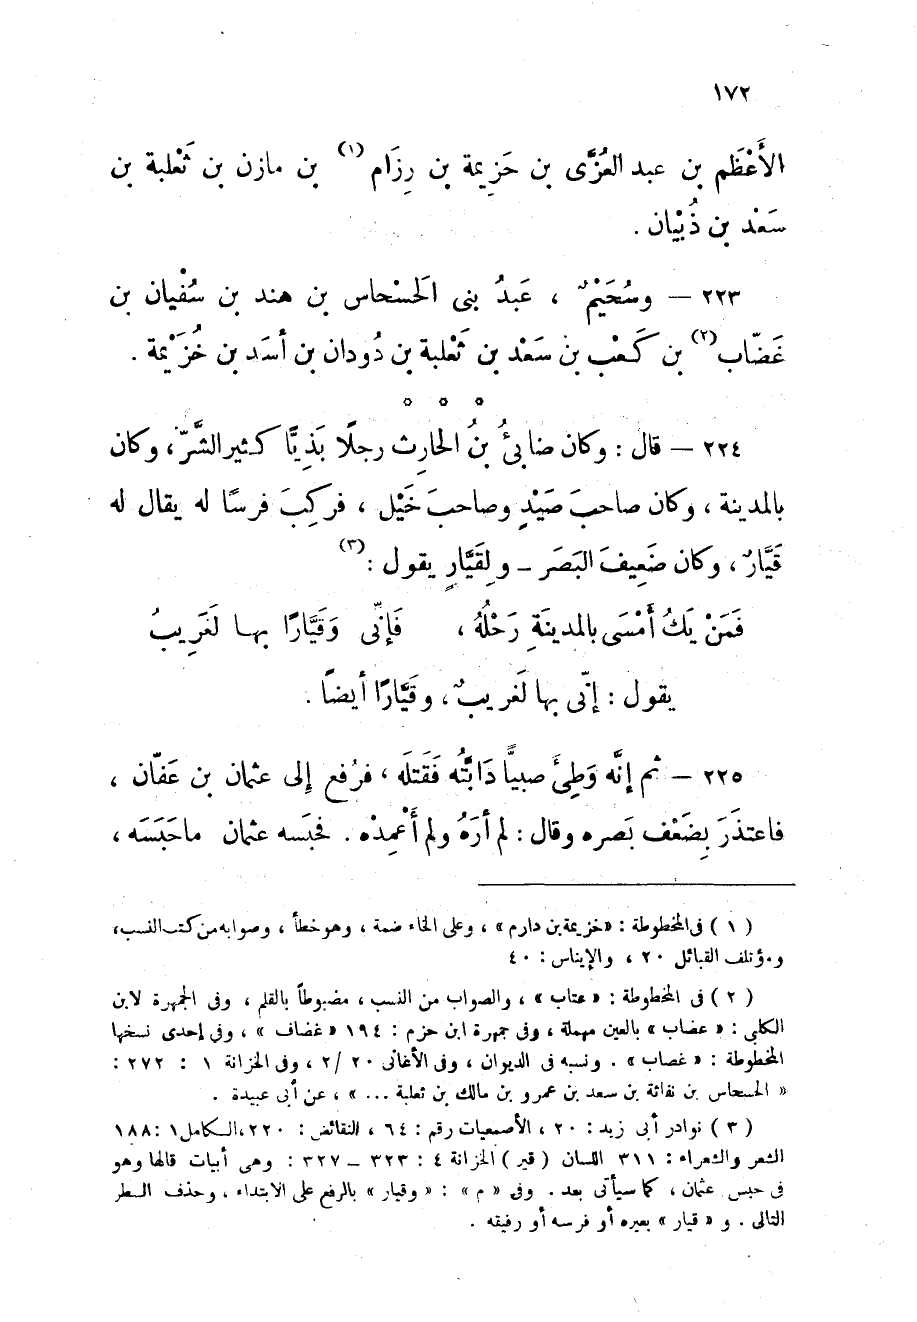 ١٧٢
الأَعْظَم بن عبد العُزَّى بن حَزِيمة بن رِزَام (١) بن مازن بن ثَعْلبة بن
سَعْد بن ذُبْيَان .
٢٢٣ – وسُحَيْمٌ ، عَبدُ بنى الحَسْحاس بن هند بن سُفْيان بن
غَضّاب(٢) بن كَعْب بن سَعْد بن ثَعْلبة بن دُودان بن أسَد بن خُزَيْمة .
٥ ٥ ٥
٢٢٤ – قال : وكان ضابئُ بنُ الحارِث رجلًا بَذِيًّا كثير الشَّرّ ، وكان
بالمدينة ، وكان صاحبَ صَيْدٍ وصاحبَ خَيْل ، فركِبَ فرسًا له يقال له
قَيَّارٌ ، وكان ضَعِيفَ البَصَر – ولِقَيَّارٍ يقول : (٣)
فَمَنْ يَكُ أَمْسَى بالمدينَةِ رَحْلُهُ ، فَإِنِّى وَقَيَّارًا بها لَغَرِيبُ
يقول : إنّى بها لَغريبٌ ، وقَيَّارًا أيضًا .
٢٢٥ – ثم إنَّه وَطِئَ صبيًّا دَابَّتُه فَقَتلَه ، فرُفع إلى عثمان بن عَفّان ،
فاعتذَرَ بِضَعْف بَصره وقال : لم أرَهُ ولم أَعْمِدْه . فحَبَسه عثمان ماحَبَسَه ،
( ١ ) فى المخطوطة : « خزيمة بن دارم » ، وعلى الخاء ضمة ، وهو خطأ ، وصوابه من كتب النسب ،
ومؤتلف القبائل ٢٠ ، والإيناس : ٤٠
( ٢ ) فى المخطوطة : « عتاب » ، والصواب من النسب ، مضبوطاً بالقلم ، وفى الجمهرة لابن
الكلبى : « عضاب » بالعين مهملة ، وفى جمهرة ابن حزم : ١٩٤ « غضاف » ، وفى إحدى نسخها
المخطوطة : « غصاب » . ونسبه فى الديوان ، وفى الأغانى ٢٠ /٢ ، وفى الخزانة ١ : ٢٧٢ :
« الحسحاس بن نفاثة بن سعد بن عمرو بن مالك بن ثعلبة ... » ، عن أبى عبيدة .
( ٣ ) نوادر أبى زيد : ٢٠ ، الأصمعيات رقم : ٦٤ ، النقائض : ٢٢٠ ، الكامل ١ : ١٨٨
الشعر والشعراء : ٣١١ اللسان ( قير ) الخزانة ٤ : ٣٢٣ – ٣٢٧ : وهى أبيات قالها وهو
فى حبس عثمان ، كما سيأتى بعد . وفى « م » : « وقيار » بالرفع على الابتداء ، وحذف السطر
التالى . و « قيار » بعيره أو فرسه أو رفيقه .